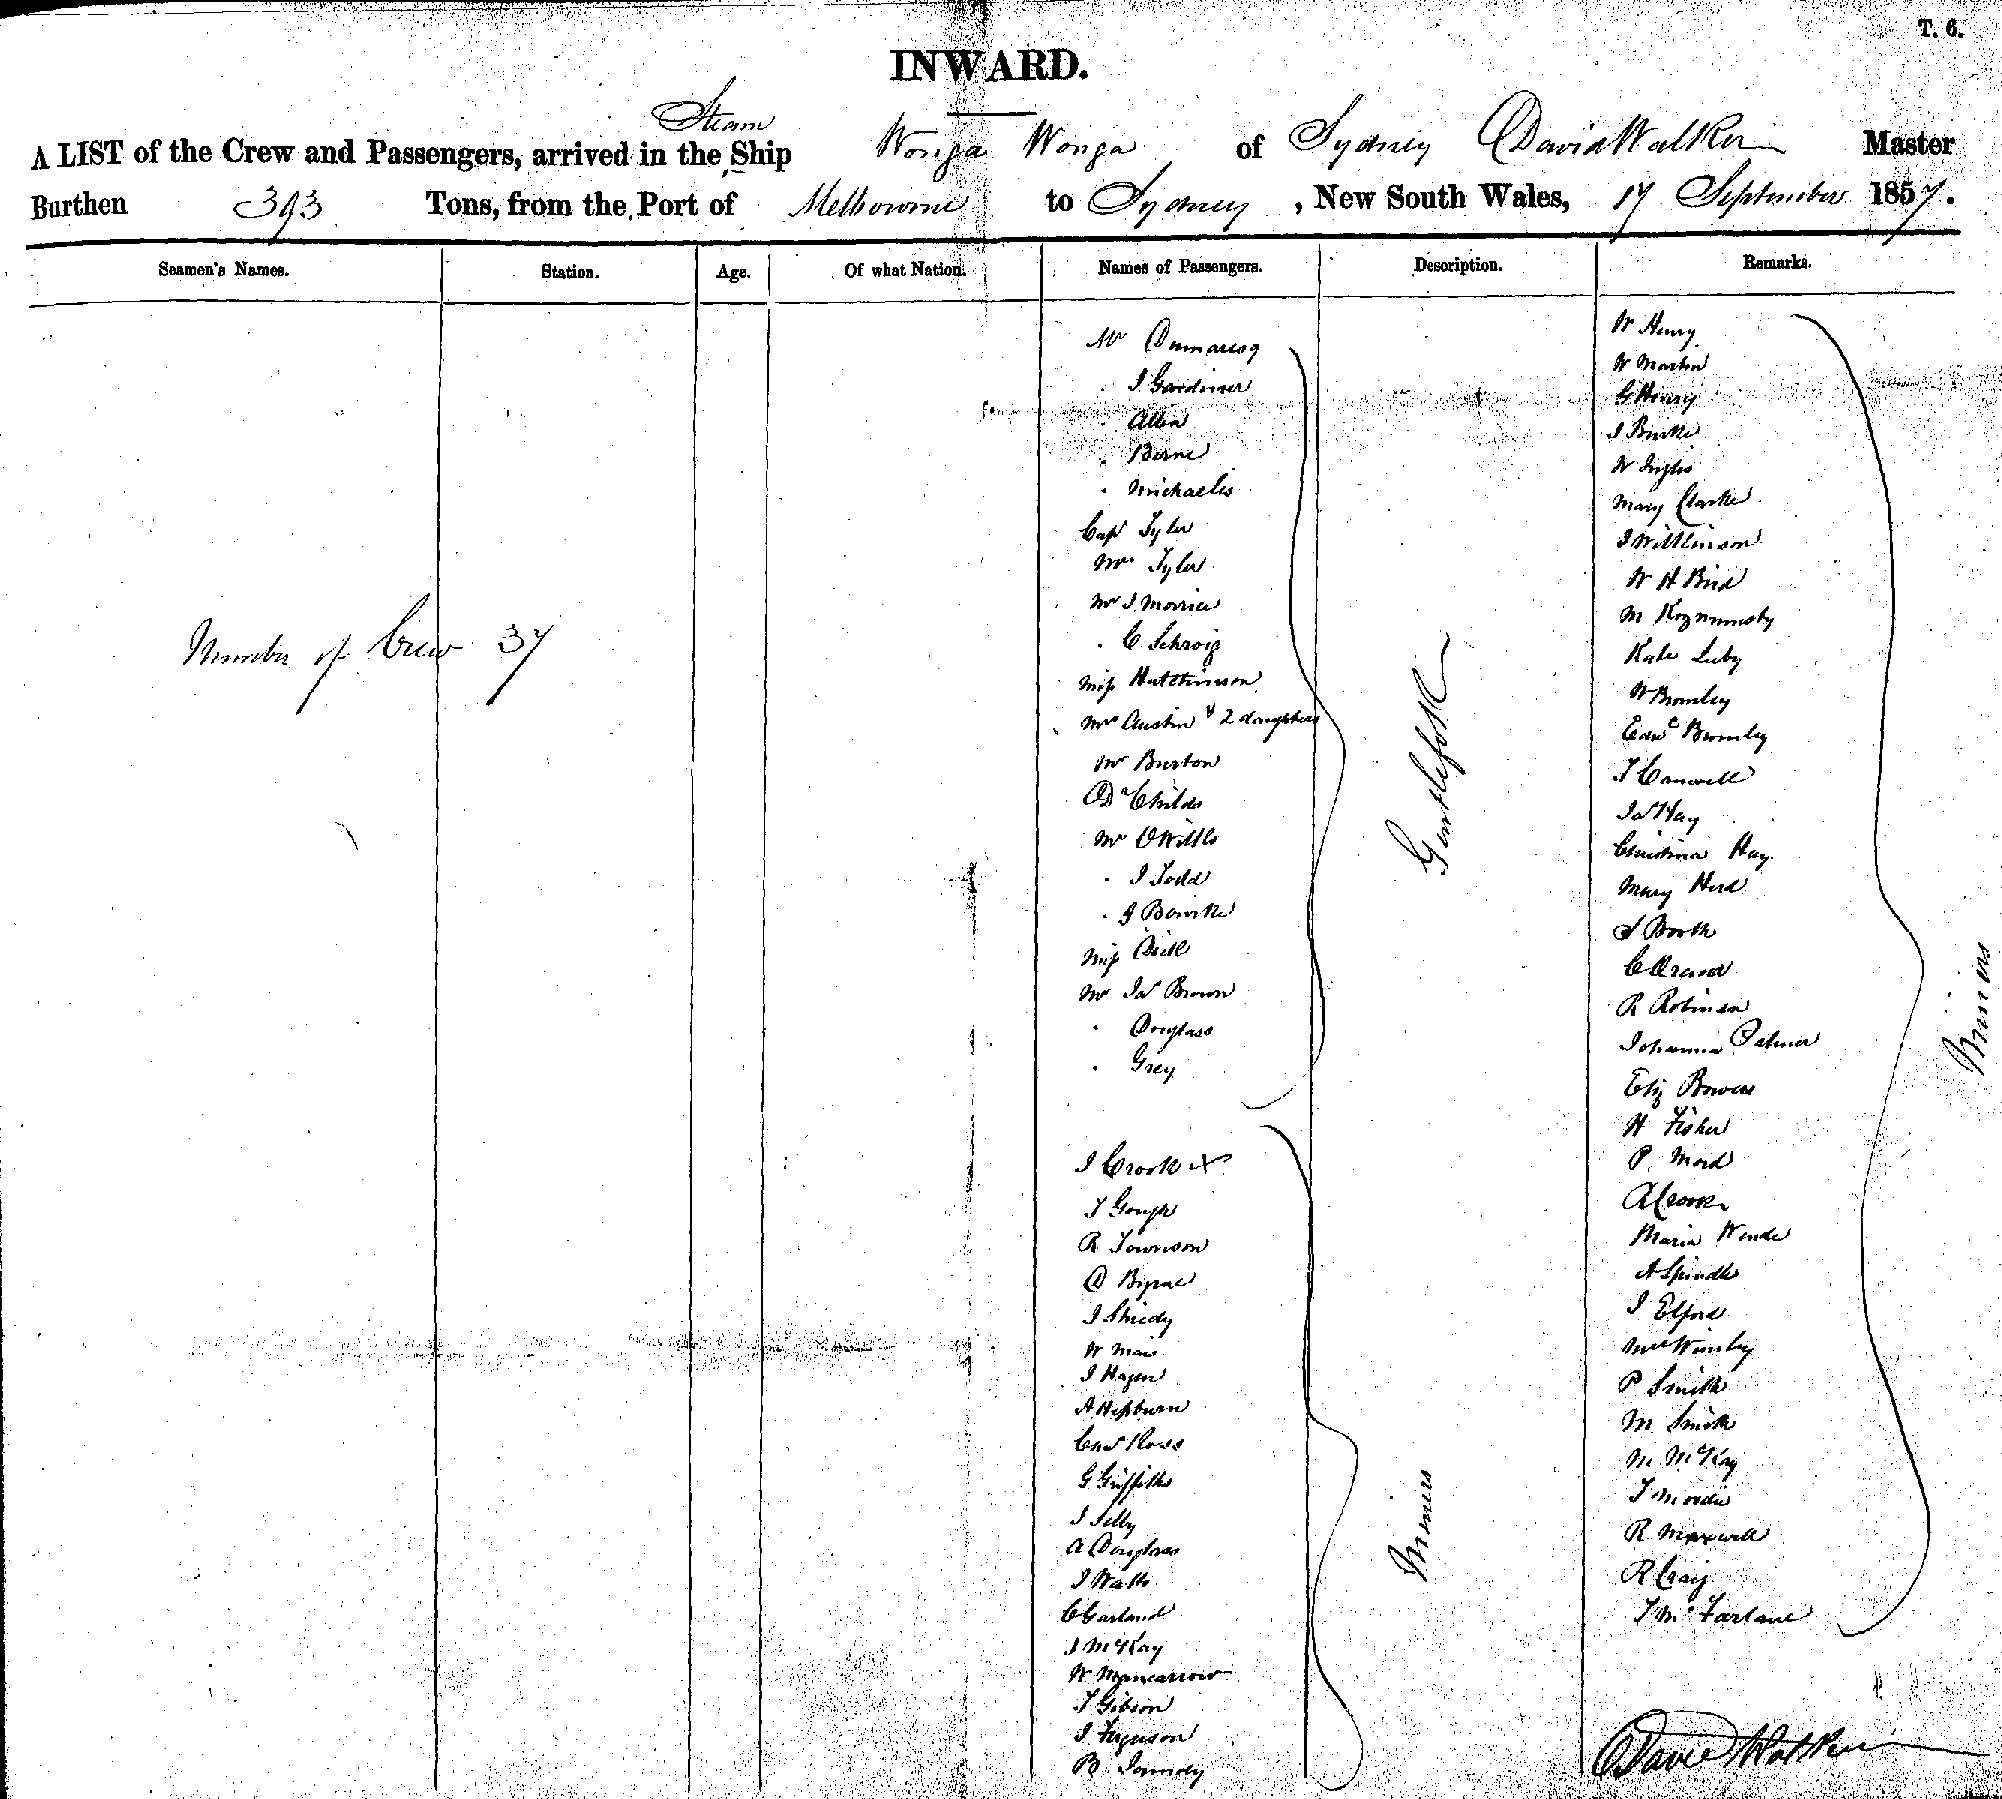 T. 6.
INWARD.
Steam
A LIST of the Crew and Passengers, arrived in the Ship Wonga Wonga of Sydney David Walker Master
Burthen 393 Tons, from the Port of Melbourne to Sydney, New South Wales, 17 September 1857.
Seamen's Names. Station. Age. Of what Nation. Names of Passengers. Description. Remarks.
Number of Crew 37
Mr Dumaresq
J Gardiner
Allen
Birne
Michaelis
Capt Tyler
Mrs Tyler
Mr J Morrice
C Schroiz
Miss Hutchinson
Mrs Austin & 2 daughters
Mr Burton
Dr Childs
Mr O Wills
J Todd
J Bourke
Miss
Mr Jas Brown
Douglass
Grey
Gentlefolk
J Crook x
J Gough
R Townson
D Byrne
J Sheedy
W
J Hagen
A Hepburn
Chas Ross
G Griffiths
J Silly
A Douglass
J Watts
C Garland
J McKay
W Mancarrow
J Gibson
J Ferguson
B
Miners
W Henry
W Martin
G Henry
J Burke
W Inglis
Mary Clarke
J Wilkinson
W H Bird
M
Kate Luby
W Bromley
Edwd Bromley
T Canwell
Jas Hay
Christina Hay
Mary Herd
S Booth
C
R Robinson
Johanna Palmer
Eliz Bowen
H Fisher
P. Mord
A Crook
Maria Wende
A Spindle
J Elford
Mrs Winsley
P Smith
M Smith
M McKay
T Moodie
R Maxwell
R Craig
T McFarlane
Miners
David Walker